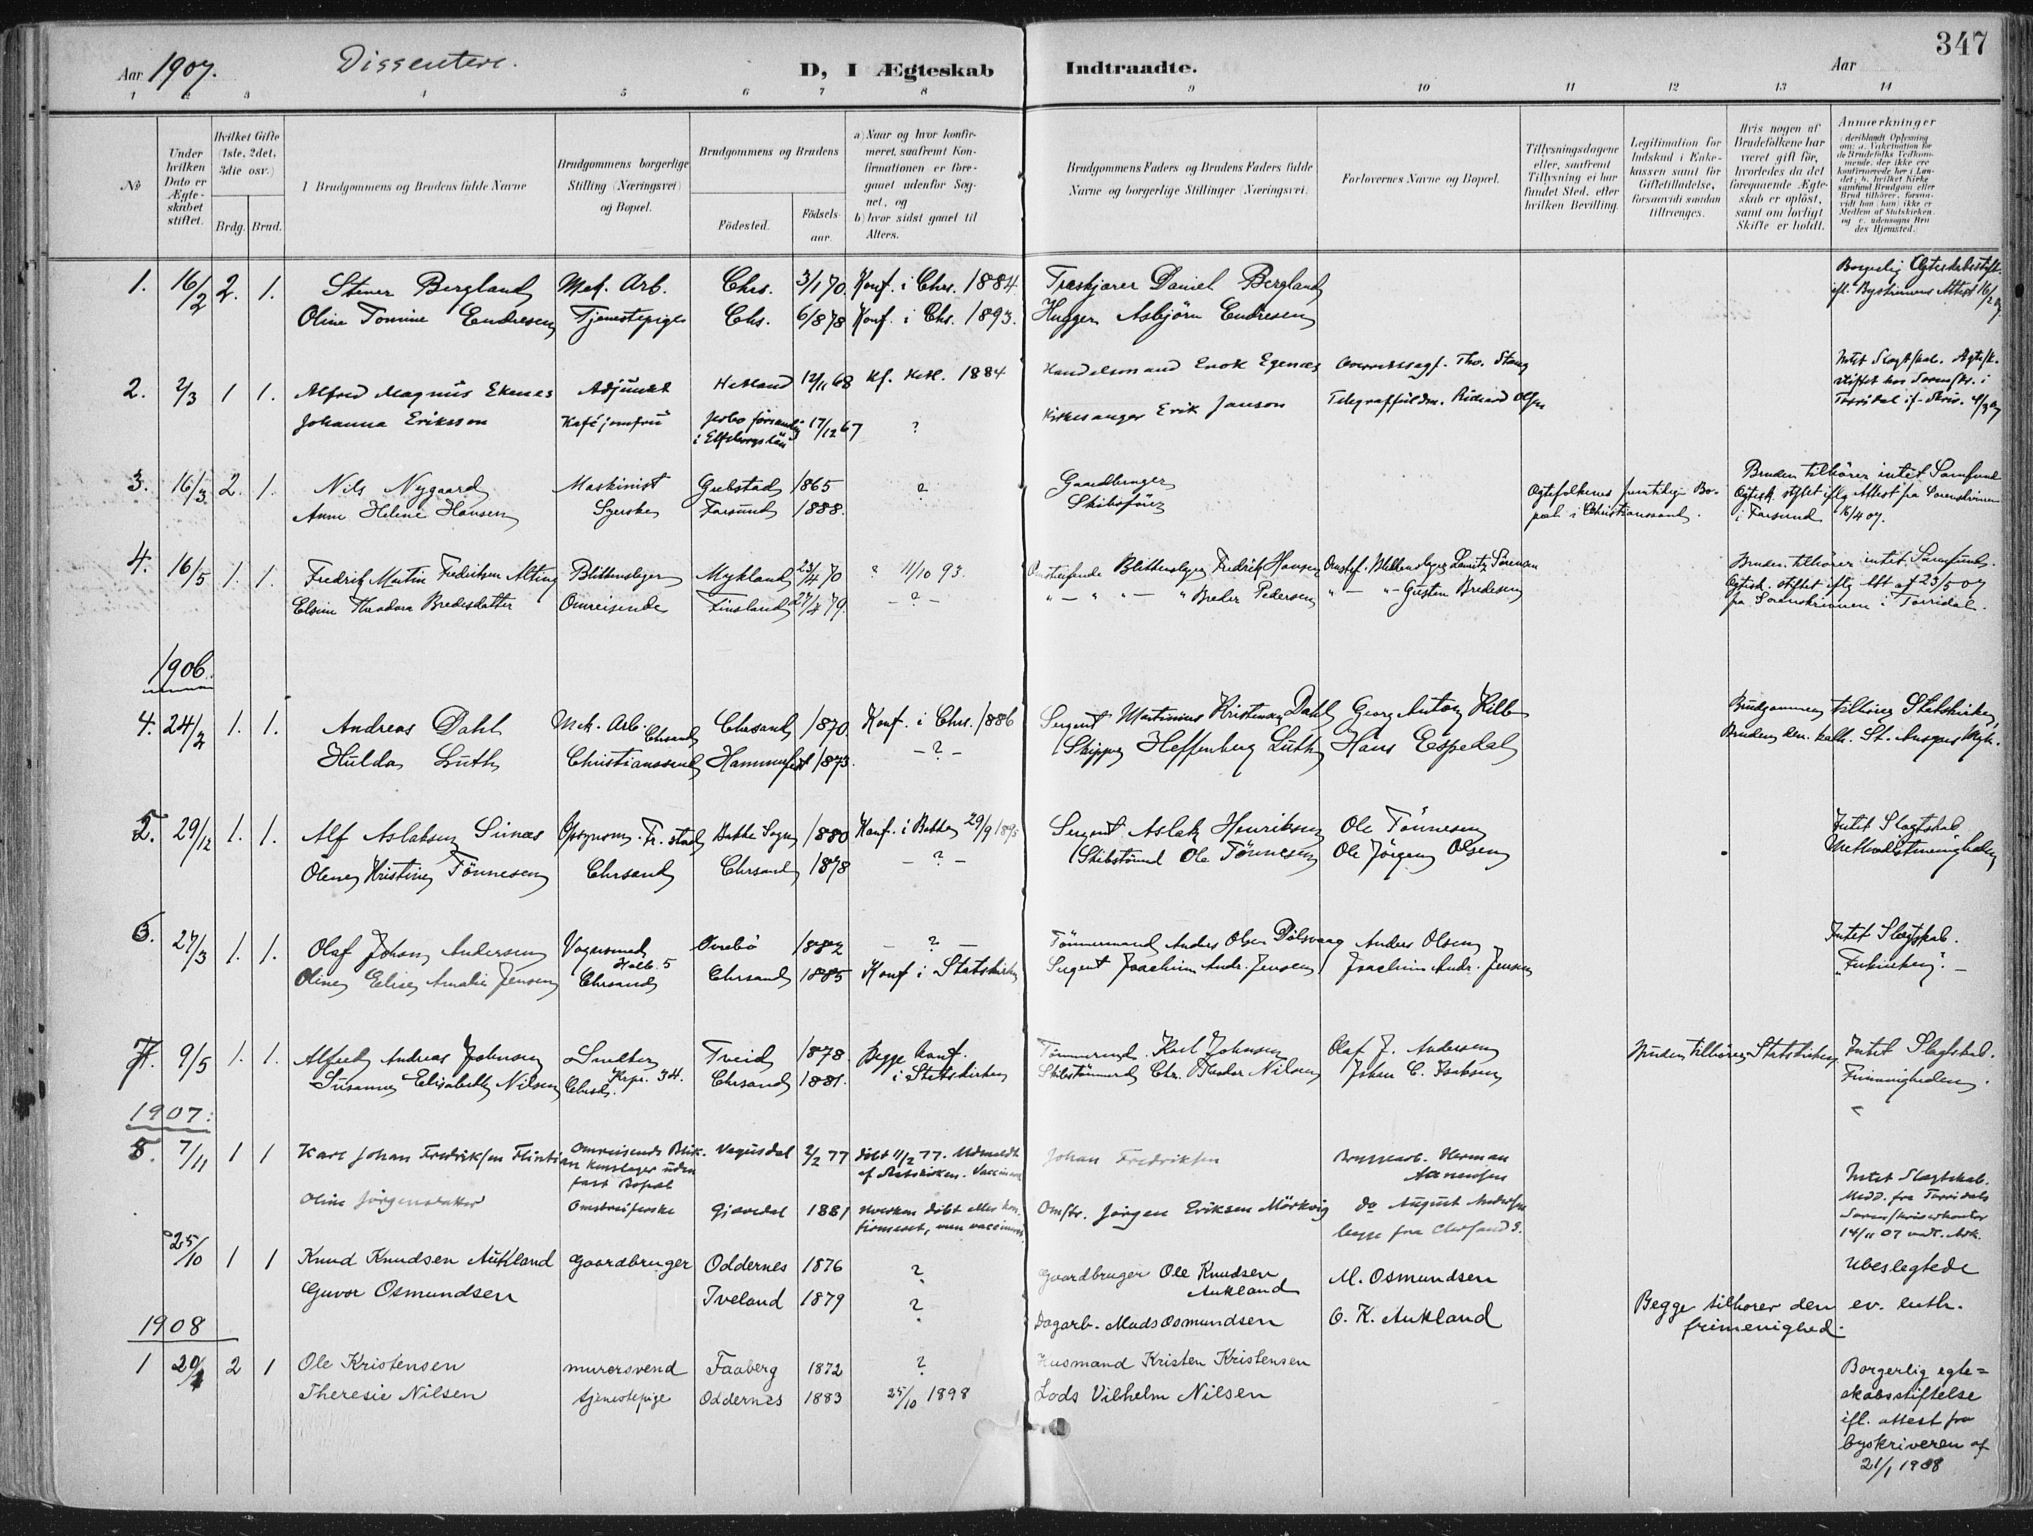 347
Aar 1907. Dissentere. D, I Ægteskab Indtraadte. Aar
1 2 3 4 5 6 7 8 9 10 11 12 13 14
No
Under hvilken Dato er Ægteskabet stiftet.
Hvilket Gifte (1ste, 2det, 3die osv.)
Brdg. Brud.
1 Brudgommens og Brudens fulde Navne
Brudgommens borgerlige Stilling (Næringsvei) og Bopæl.
Brudgommens og Brudens
Födested. Födselsaar.
a) Naar og hvor konfirmeret, saafremt Konfirmationen er foregaaet udenfor Sognet, og
b) hvor sidst gaaet til Alters.
Brudgommens Faders og Brudens Faders fulde Navne og borgerlige Stillinger (Næringsvei).
Forlovernes Navne og Bopæl.
Tillysningsdagene eller, saafremt Tillysning ei har fundet Sted, efter hvilken Bevilling.
Legitimation for Indskud i Enkekassen samt for Giftetilladelse, forsaavidt saadan tiltrænges.
Hvis nogen af Brudefolkene har været gift før, hvorledes da det foregaaende Ægteskab er opløst, samt om lovligt Skifte er holdt.
Anmærkninger
1. 16/2 2. 1. Stener Bergland Mek. Arb. Chrs. 3/1 70 Konf. i Chrs. 1884. Træskjærer Daniel Bergland
Oline Tomine Endresen Tjenestepige Chs. 6/8 78 Konf. i Chs. 1893. Hugger Asbjörn Endresen
Borgerlig Ægteskabsstift. ifl. Byskriverens Attest 16/2 07
2. 2/3 1 1. Alfred Magnus Ekenes Adjunkt Hetland 12/11 68 Kf. Hetl. 1884 Handelsmand Enok Egenæs Overretssagf. Tho. Stang
Johanna Eriksson Kaféjomfru i Elfsborgs län 17/12 67 ? Kirkesanger Erik Janson Telegraffuldm. Rikard Olsen
Intet Slagtskab. Ægtesk. stiftet hos Sorenskr. i Torridal
3. 16/3 2. 1. Nils Nygaard Maskinist Grebstad 1865 ? Gaardbruger
Anne Helene Hansen Syerske Farsund 1888. Skibsförer
Ægtefolkenes fremtidige Bopæl i Christianssand.
Bruden tilhörer intet Samfund
Ægtesk. stiftet iflg. Attest fra Sorenskriveren i Farsund 16/4 07.
4. 16/5 1. 1. Fredrik Martin Fredriksen Alting Blikkenslager Mykland 23/4 70 ? 11/10 93. Omstreifende Blikkenslager Fredrik Hansen Omstrf. Blikkenslager Lauritz Sörensen
Elsine Theodora Bredesdatter Omreisende Finsland 27/4 79. - ? - " - " " - " Breder Pedersen " - " - Gustin Bredesen
Bruden tilhörer intet Samfund.
Ægtesk. stiftet iflg. Att af 23/5 07
fra Sorenskriveren i Torridal.
1906.
4. 24/2 1. 1. Andreas Dahl Mek. Arb. Chrsand Chrsand 1870. Konf. i Chrs. 1886 Sergent Martinius Kristensen Dahl Georg Anton
Hulda Luth Christianssand Hammerfest 1873. - ? - Skipper Heffenberg Luth Hans Espedal
Brudgommen tilhörer Statskirken,
Bruden den kath. St. Ansgars Mgh.
5. 29/12 1. 1. Alf Aslaksen Sirnæs Fr. stad Bakke Sogn 1880 Konf. i Bakke 29/9 1895 Sergent Aslak Henriksen Ole Tönnesen
Olene Kristine Tönnesen Chrsand Chrsand 1878 - ? - Skibstömmd Ole Tönnesen Ole Jörgen Olsen
Intet Slagtskab
Methodistmenigheden
6. 27/3 1. 1. Olaf Johan Andersen Vognsmed Holb. 5 Övrebö 1882 - ? - Tömmermand Anders Olsen Dölsvaag Anders Olsen
Oline Elise Amalie Jensen Chrsand Chrsand 1885 Konf i Statskirken Sergent Joachim Andr. Jensen Joachim Andr. Jensen
Intet Slagtskab.
"Frikirken".
7. 9/5 1. 1. Alfred Andreas Johnsen Smelter Tveid 1878. Begge konf. Tömmermd. Karl Johnsen Olaf J. Andersen
Susanne Elisabeth Nilsen Chrsd. Krpr. 34. Chrsand 1881. i Statskirken Skibstömmerd. Chr. Theodor Nilsen Johan C. Isaksen
Bruden tilhörer Statskirken Intet Slagtskab.
Frimenigheden.
1907.
8. 7/11 1 1 Karl Johan Fredriksen Flintian Omreisende Blikkenslager uden fast Bopæl Vegusdal 2/2 77 döbt 11/2 77. Udmeldt af Statskirken. Vaccineret Johan Fredriksen Bryggearb. Herman Aanensen
Oline Jörgensdatter Omstreiferske Gjövdal 1881 Hverken döbt eller konfirmeret, men vaccineret Omstr. Jörgen Eriksen Mörkvig do August Andersen
begge fra Chrsand S.
Intet Slagtskab. Medd. fra Torridals Sorenskriverkontor 14/11 07
25/10 1 1 Knud Knudsen Aukland Gaardbruger Oddernes 1876 ? Gaardbruger Ole Knudsen Aukland M. Osmundsen
Guvor Osmundsen Tveland 1879 ? Dagarb. Mads Osmundsen O. K. Aukland
Ubeslegtede
Begge tilhorer den ev. luth. frimenighed.
1908
1 20/1 2 1 Ole Kristensen murersvend Faaberg 1872 ? Husmand Kristen Kristensen
Theresie Nilsen tjenestepige Oddernes 1883 25/10 1898 Lods Vilhelm Nilsen
Borgerlig egteskabsstiftelse ifl. attest fra byskriveren af 21/1 1908